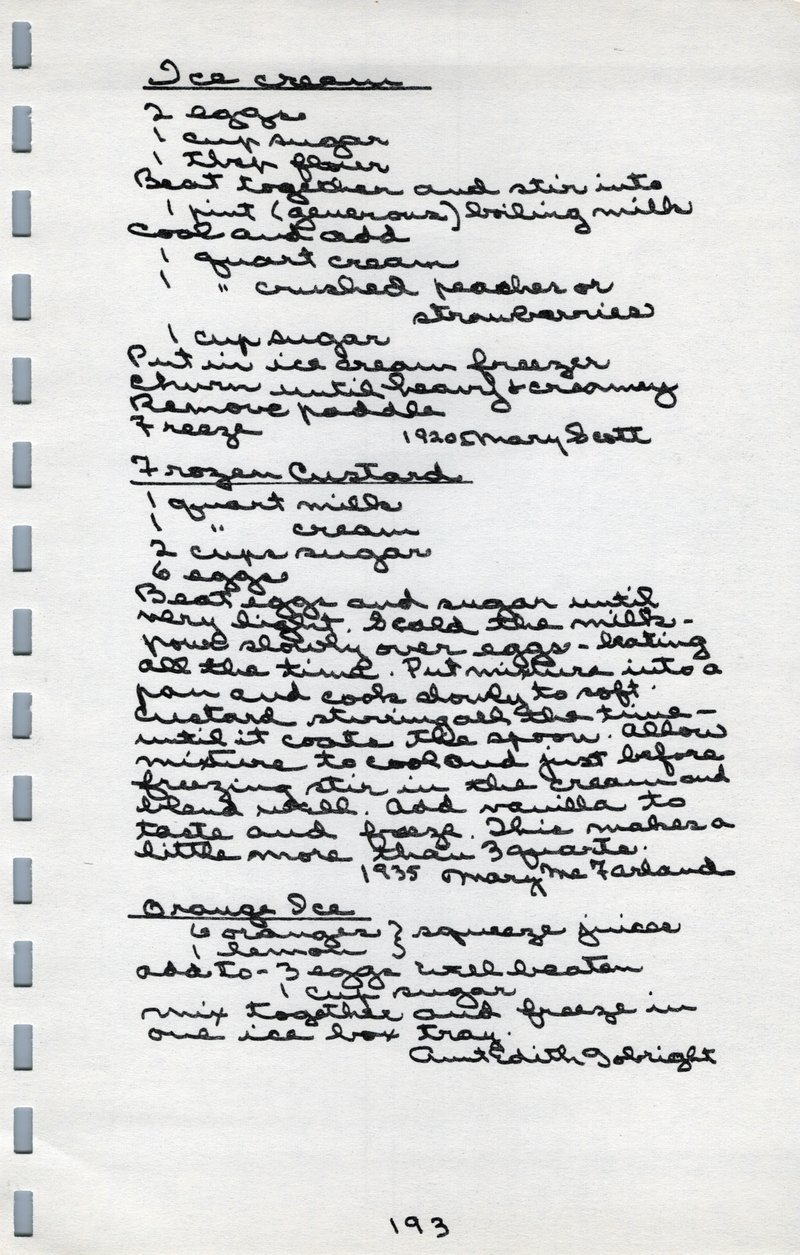 Ice cream
2 eggs
1 cup sugar
1 tbsp flour
Beat together and stir into
1 pint (generous) boiling milk
Cool and add
1 quart cream
1 " crushed peaches or
strawberries
1 cup sugar
Put in ice cream freezer
Churn until heavy & creamey
Remove paddle
Freeze 1920s Mary Scott
Frozen Custard
1 quart milk
1 " cream
2 cups sugar
6 eggs
Beat eggs and sugar until
very light. Scald the milk -
pour slowly over eggs - beating
all the time. Put mixture into a
pan and cook slowly to soft
custard stirring all the time -
until it coats the spoon. Allow
mixture to cool and just before
freezing stir in the cream and
blend well. Add vanilla to
taste and freeze. This makes a
little more than 3 quarts.
1935 Mary McFarland
Orange Ice
6 oranges } squeeze juices
1 lemon }
add to - 3 eggs well beaten
1 cup sugar
Mix together and freeze in
one ice box tray.
Aunt Edith Gobright
193